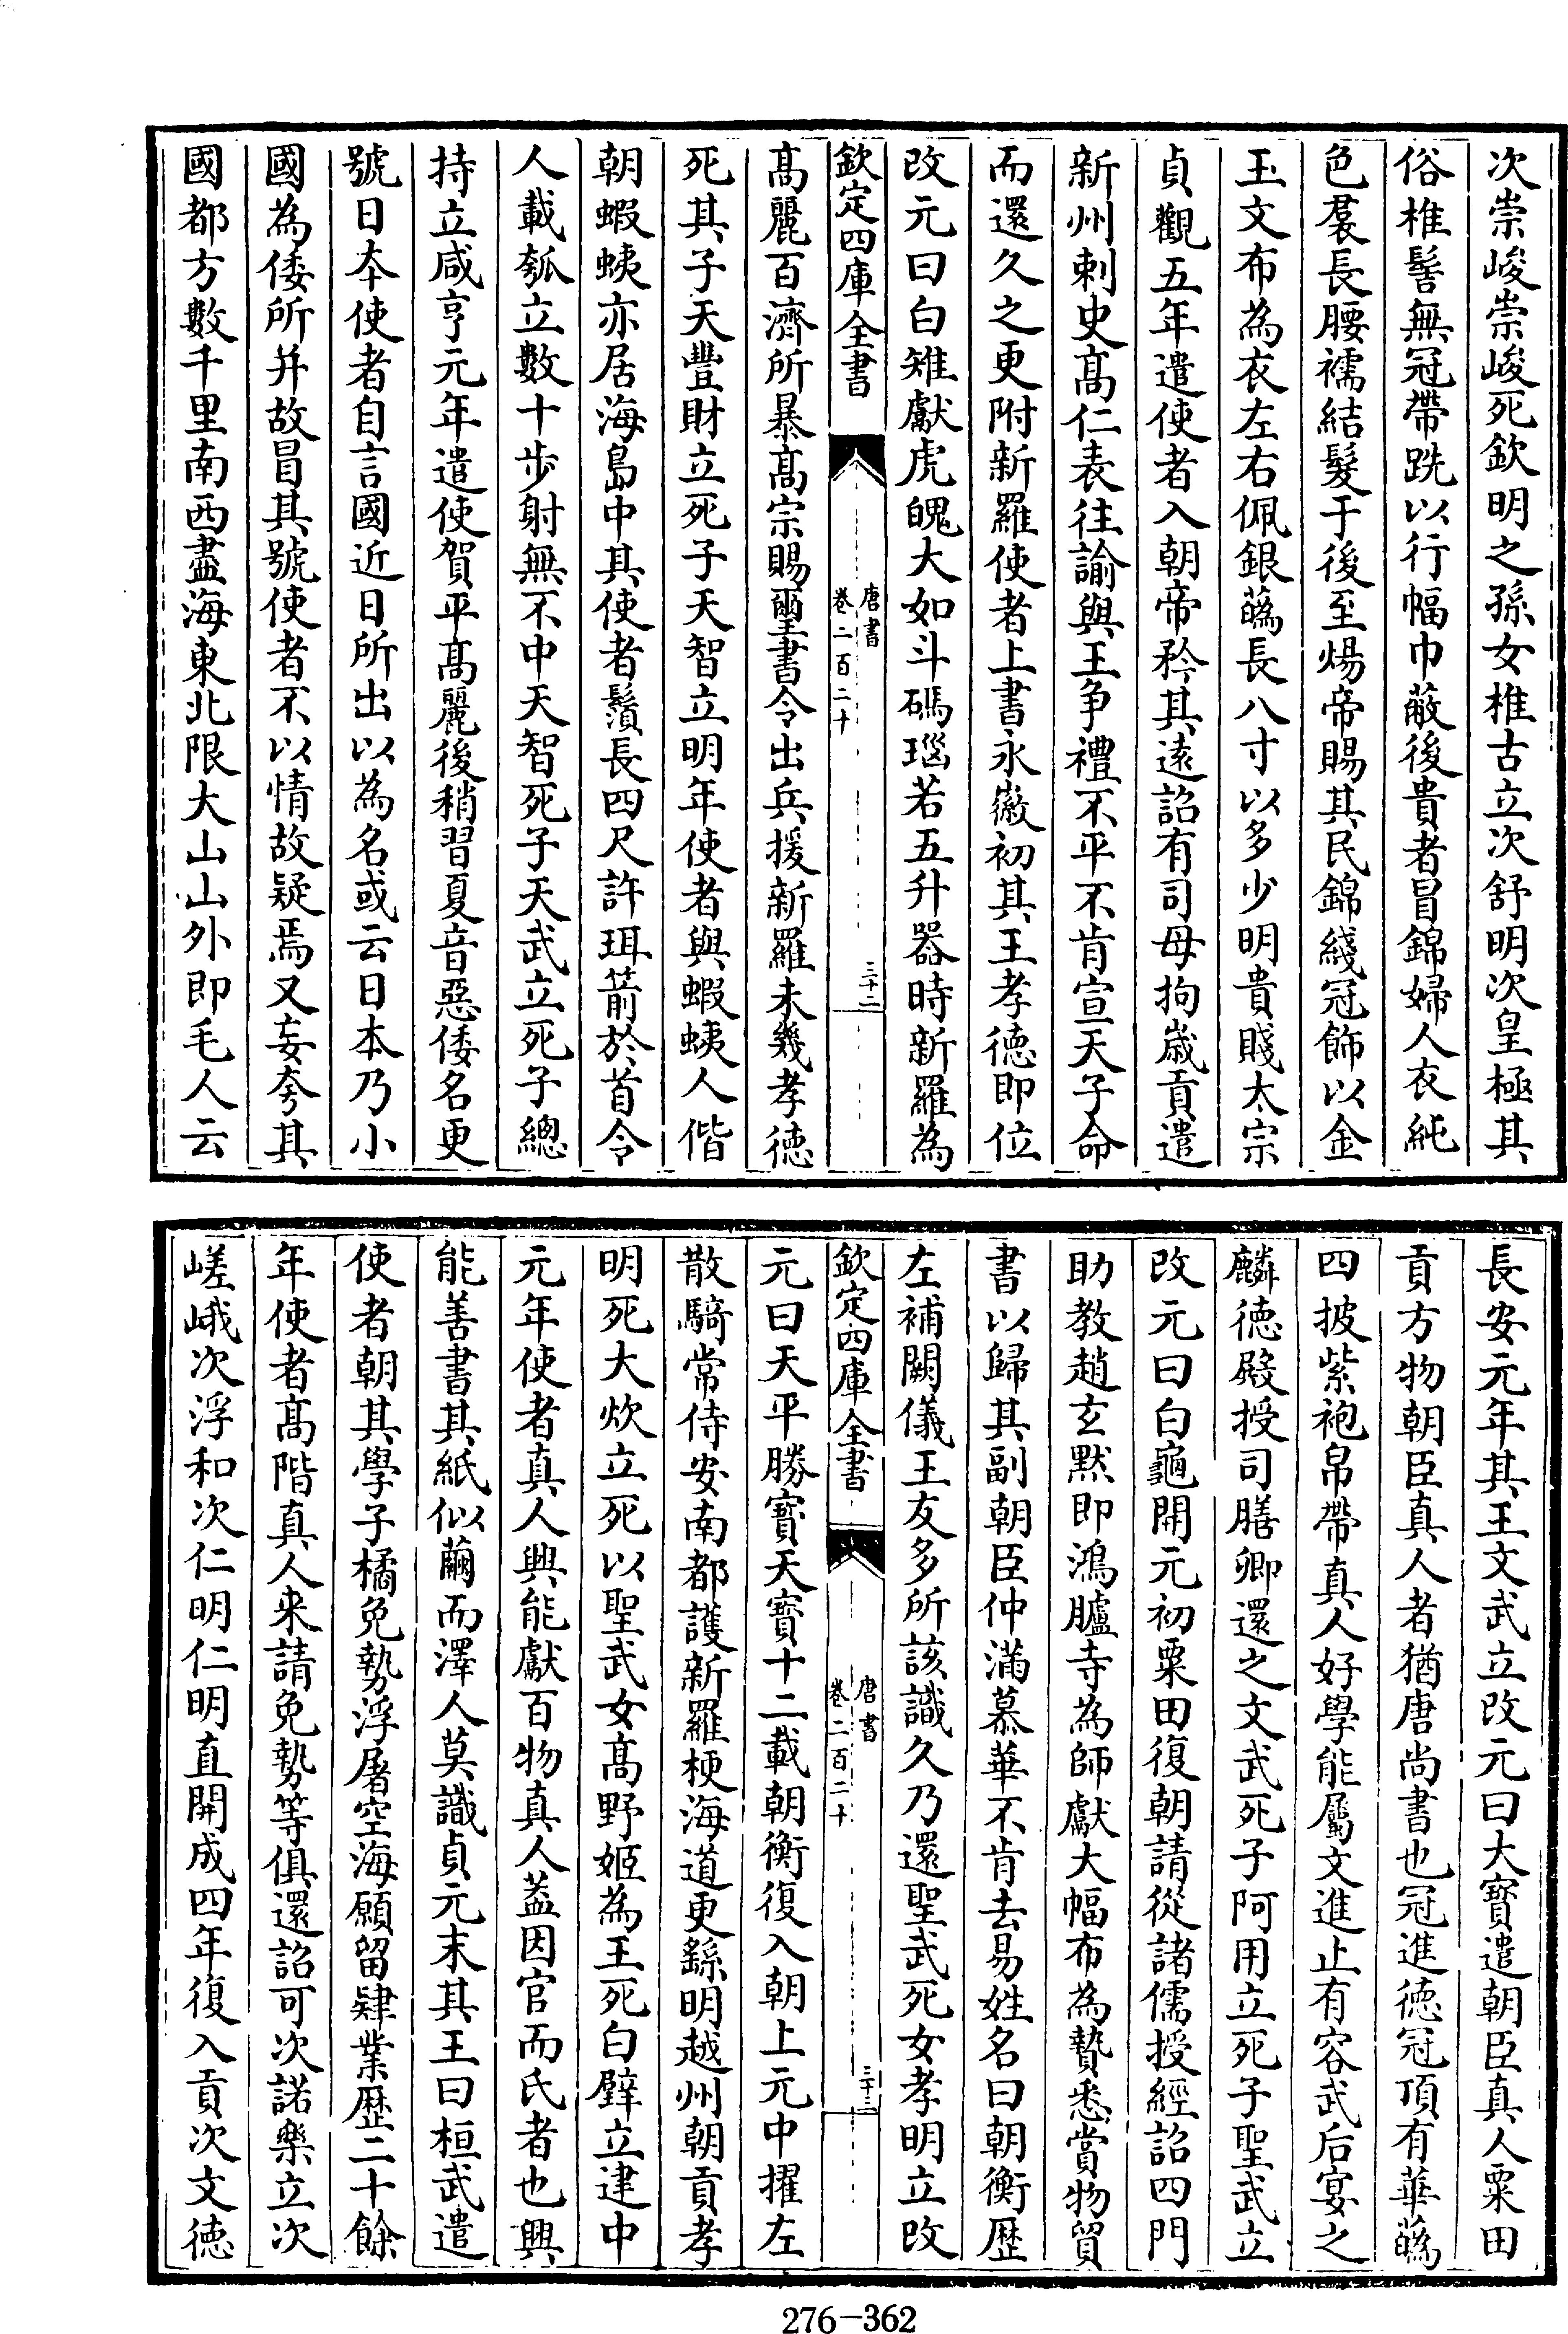 次崇峻崇峻死欽明之孫女椎古立次舒明次皇極其
俗椎髻無冠帶跣以行幅巾蔽後貴者冒錦婦人衣純
色裠長腰襦結髮于後至煬帝賜其民錦綫冠飾以金
玉文布為衣左右佩銀蘤長八寸以多少明貴賤太宗
貞觀五年遣使者入朝帝矜其遠詔有司毋拘嵗貢遣
新州刺史髙仁表往諭與王争禮不平不肯宣天子命
而還久之更附新羅使者上書永徽初其王孝徳即位
改元曰白雉獻虎魄大如斗碼瑙若五升器時新羅為
欽定四庫全書
唐書
卷二百二十
三十二
髙麗百濟所暴髙宗賜璽書令出兵援新羅未幾孝徳
死其子天豐財立死子天智立明年使者與蝦蛦人偕
朝蝦蛦亦居海島中其使者鬚長四尺許珥箭於首令
人載瓠立數十步射無不中天智死子天武立死子總
持立咸亨元年遣使賀平髙麗後稍習夏音惡倭名更
號日本使者自言國近日所出以為名或云日本乃小
國為倭所并故冒其號使者不以情故疑焉又妄夸其
國都方數千里南西盡海東北限大山山外即毛人云
長安元年其王文武立改元曰大寳遣朝臣真人粟田
貢方物朝臣真人者猶唐尚書也冠進徳冠頂有華蘤
四披紫袍帛帶真人好學能屬文進止有容武后宴之
麟德殿授司膳卿還之文武死子阿用立死子聖武立
改元曰白龜開元初粟田復朝請從諸儒授經詔四門
助教趙玄默即鴻臚寺為師獻大幅布為贄悉賞物貿
書以歸其副朝臣仲滿慕華不肯去易姓名曰朝衡歴
左補闕儀王友多所該識久乃還聖武死女孝明立改
欽定四庫全書
唐書
卷二百二十
三十三
元曰天平勝寳天寳十二載朝衡復入朝上元中擢左
散騎常侍安南都護新羅梗海道更繇明越州朝貢孝
明死大炊立死以聖武女髙野姬為王死白壁立建中
元年使者真人興能獻百物真人葢因官而氏者也興
能善書其紙似繭而澤人莫識貞元末其王曰桓武遣
使者朝其學子橘免勢浮屠空海願留肄業歴二十餘
年使者髙階真人来請免勢等俱還詔可次諾樂立次
嵯峨次浮和次仁明仁明直開成四年復入貢次文徳
276-362